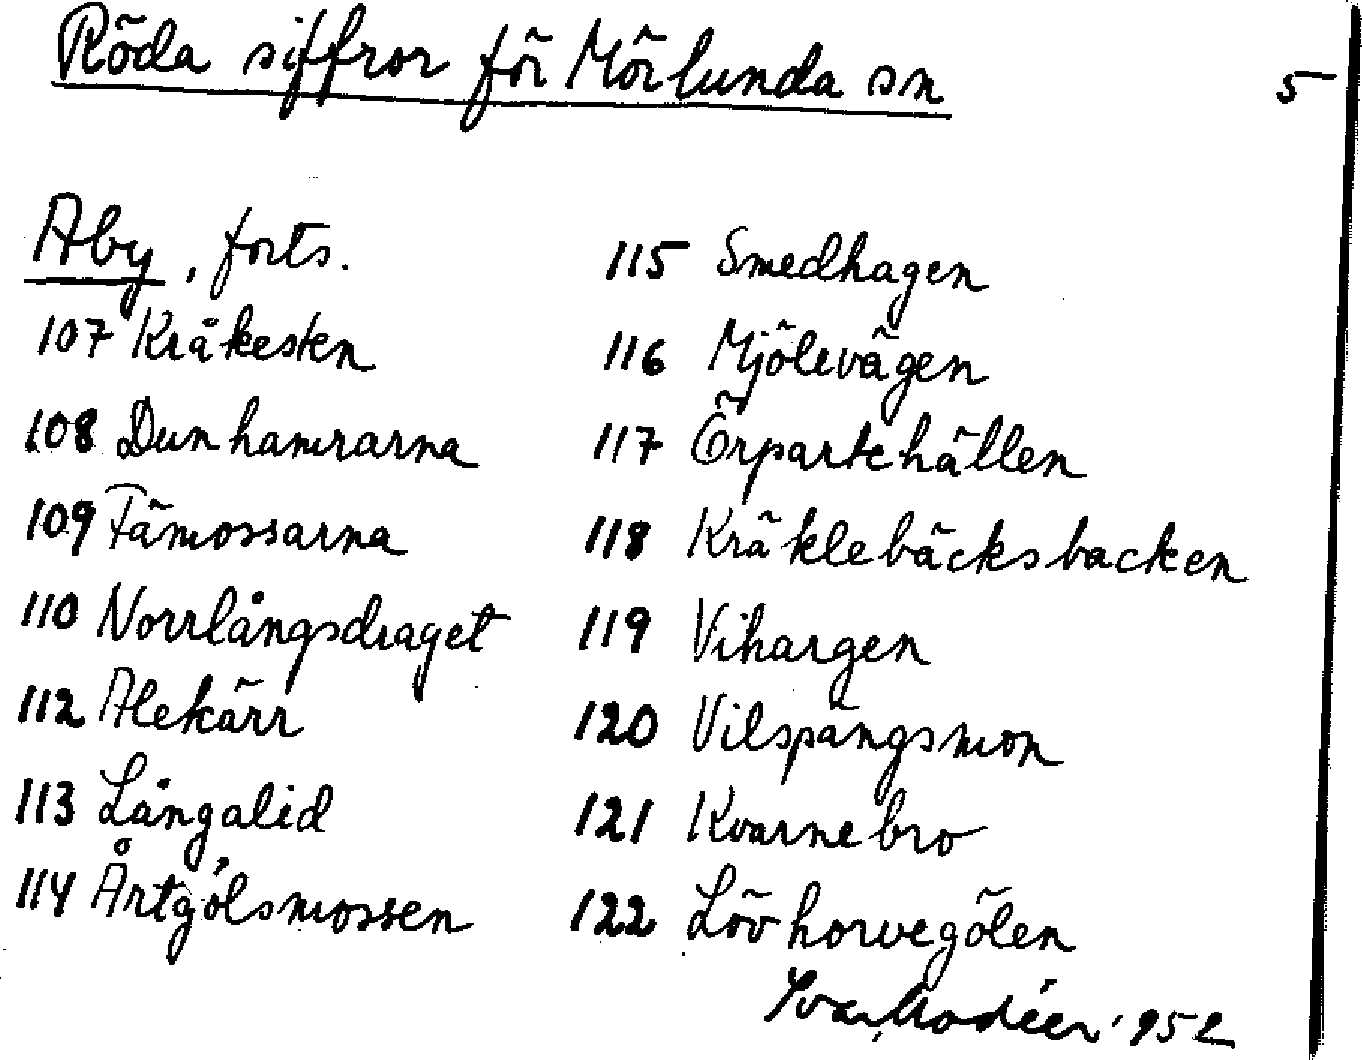 Röda siffror för Mörlunda sn
5
Åby, forts.
107 Kråkesten
108 Dunhamrarna
109 Fämossarna
110 Norrlångsdraget
112 Alekärr
113 Långalid
114 Årtgölsmossen
115 Smedhagen
116 Mjölevägen
117 Örpartehällen
118 Kräklebäcksbacken
119 Vihargen
120 Vilspångsmon
121 Kvarnebro
122 Lövhorvegölen
Ivar Modéer 1952